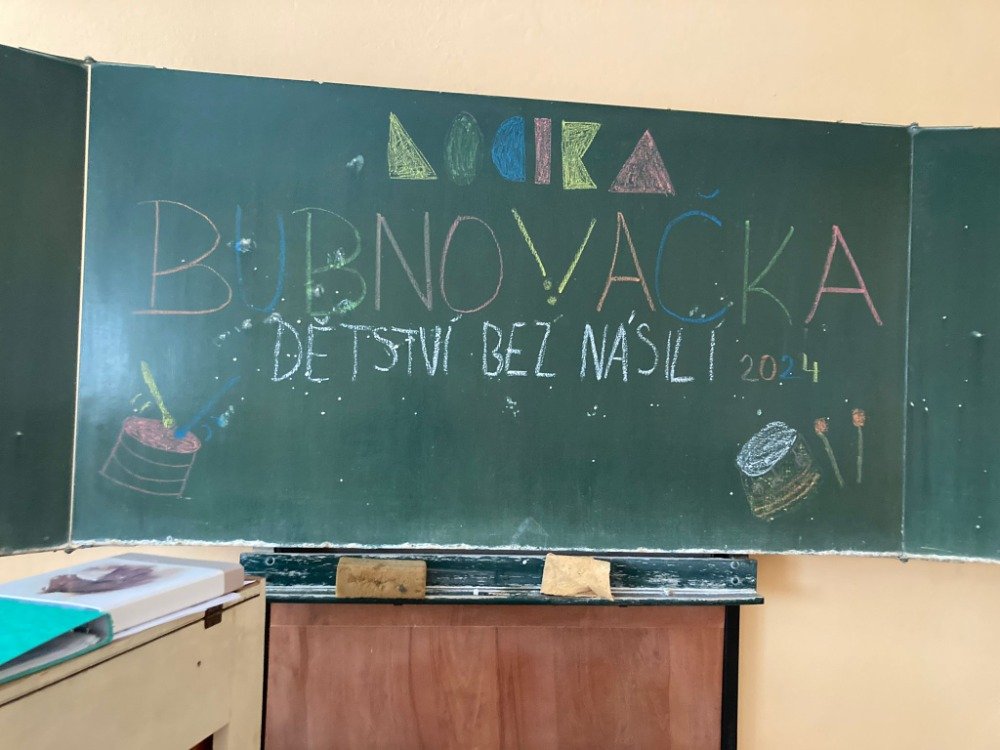 LOCIKA
BUBNOVAČKA
DĚTSTVÍ BEZ NÁSILÍ 2024